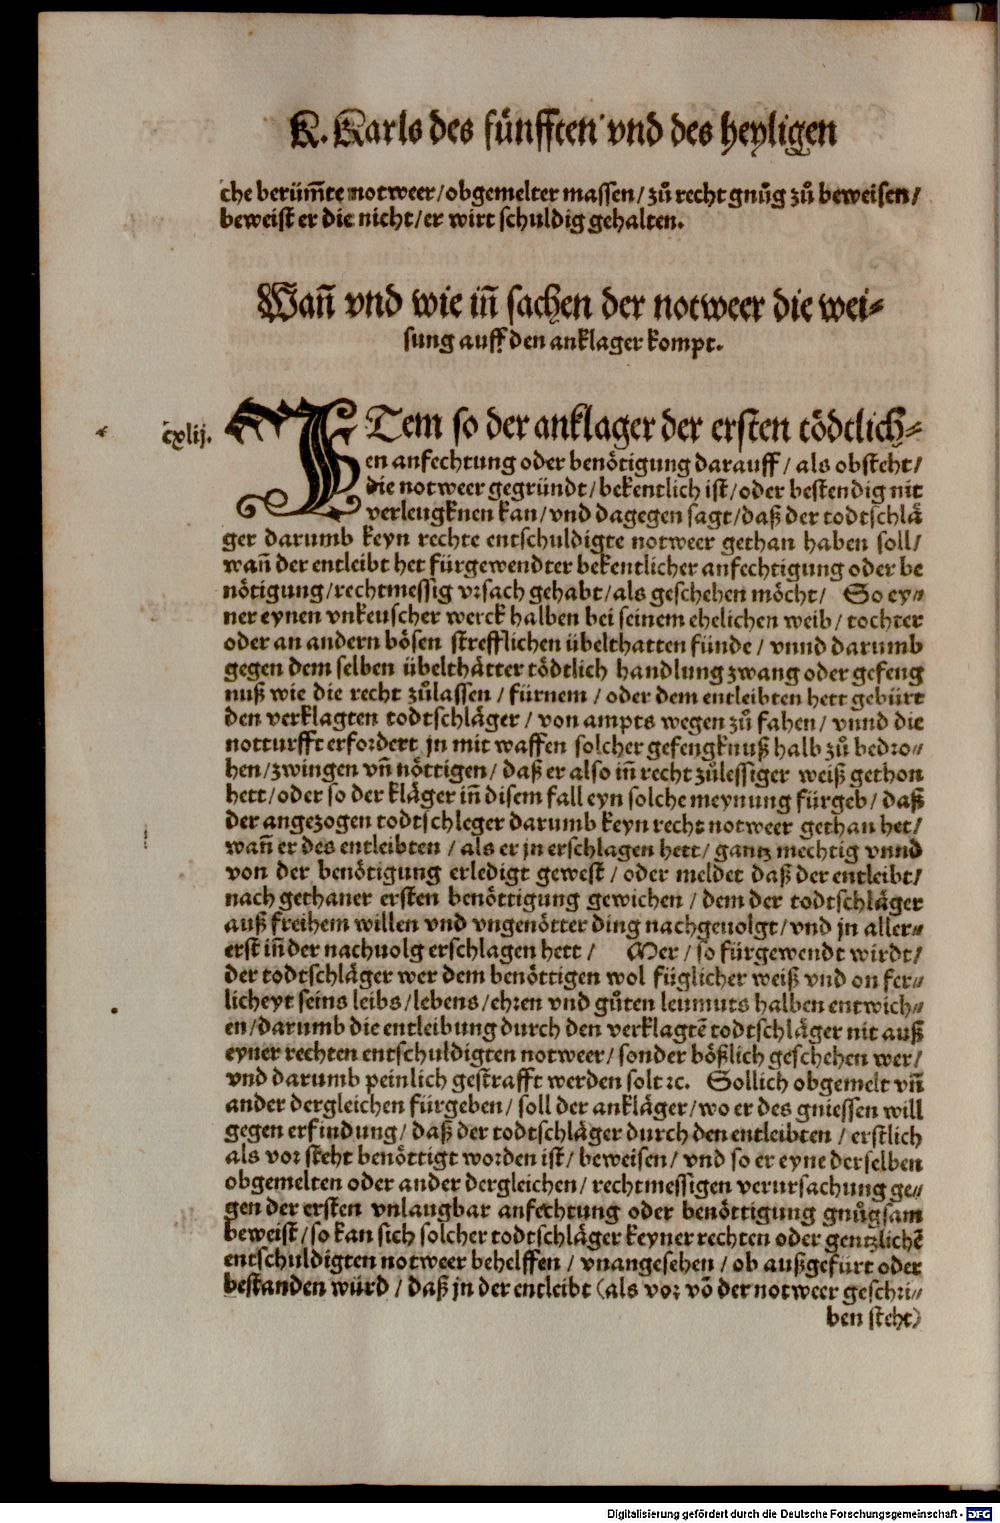 K. Karls des fünfften vnd des heyligen
che berüm̃te notweer/obgemelter massen/zů recht gnůg zů beweisen/
beweist er die nicht/er wirt schuldig gehalten.
Wañ vnd wie iñ sachen der notweer die wei⸗
sung auff den anklager kompt.
cxlij.
ITem so der anklager der ersten tödtlich⸗
en anfechtung oder benötigung darauff/als obsteht/
die notweer gegründt/bekentlich ist/oder bestendig nit
verleugknen kan/vnd dagegen sagt/daß der todtschlä
ger darumb keyn rechte entschuldigte notweer gethan haben soll/
wañ der entleibt het fürgewendter bekentlicher anfechtigung oder be
nötigung/rechtmessig vrsach gehabt/als geschehen möcht/ So ey⸗
ner eynen vnkeuscher werck halben bei seinem ehelichen weib/tochter
oder an andern bösen strefflichen übelthatten fünde/vnnd darumb
gegen dem selben übelthätter tödtlich handlung zwang oder gefeng
nuß wie die recht zůlassen/fürnem/oder dem entleibten hett gebürt
den verklagten todtschläger/von ampts wegen zů fahen/vnnd die
notturfft erfordert jn mit waffen solcher gefengknuß halb zů bedro⸗
hen/zwingen vñ nöttigen/daß er also iñ recht zůlessiger weiß gethon
hett/oder so der kläger iñ disem fall eyn solche meynung fürgeb/daß
der angezogen todtschleger darumb keyn recht notweer gethan het/
wañ er des entleibten/als er jn erschlagen hett/gantz mechtig vnnd
von der benötigung erledigt gewest/oder meldet daß der entleibt/
nach gethaner ersten benöttigung gewichen/dem der todtschläger
auß freihem willen vnd vngenötter ding nachgeuolgt/vnd jn aller⸗
erst iñ der nachuolg erschlagen hett/ Mer/so fürgewendt wirdt/
der todtschläger wer dem benöttigen wol füglicher weiß vnd on fer⸗
licheyt seins leibs/lebens/ehren vnd gůten leumuts halben entwich⸗
en/darumb die entleibung durch den verklagtẽ todtschläger nit auß
eyner rechten entschuldigten notweer/sonder bößlich geschehen wer/
vnd darumb peinlich gestrafft werden solt ꝛc. Sollich obgemelt vñ
ander dergleichen fürgeben/soll der ankläger/wo er des gniessen will
gegen erfindung/daß der todtschläger durch den entleibten/erstlich
als vor steht benöttigt worden ist/beweisen/vnd so er eyne derselben
obgemelten oder ander dergleichen/rechtmessigen verursachung ge⸗
gen der ersten vnlaugbar anfechtung oder benöttigung gnůgsam
beweist/so kan sich solcher todtschläger keyner rechten oder gentzlichẽ
entschuldigten notweer behelffen/vnangesehen/ob außgefürt oder
bestanden würd/daß jn der entleibt (als vor võ der notweer geschri⸗
ben steht)
Digitalisierung gefördert durch die Deutsche Forschungsgemeinschaft - DFG